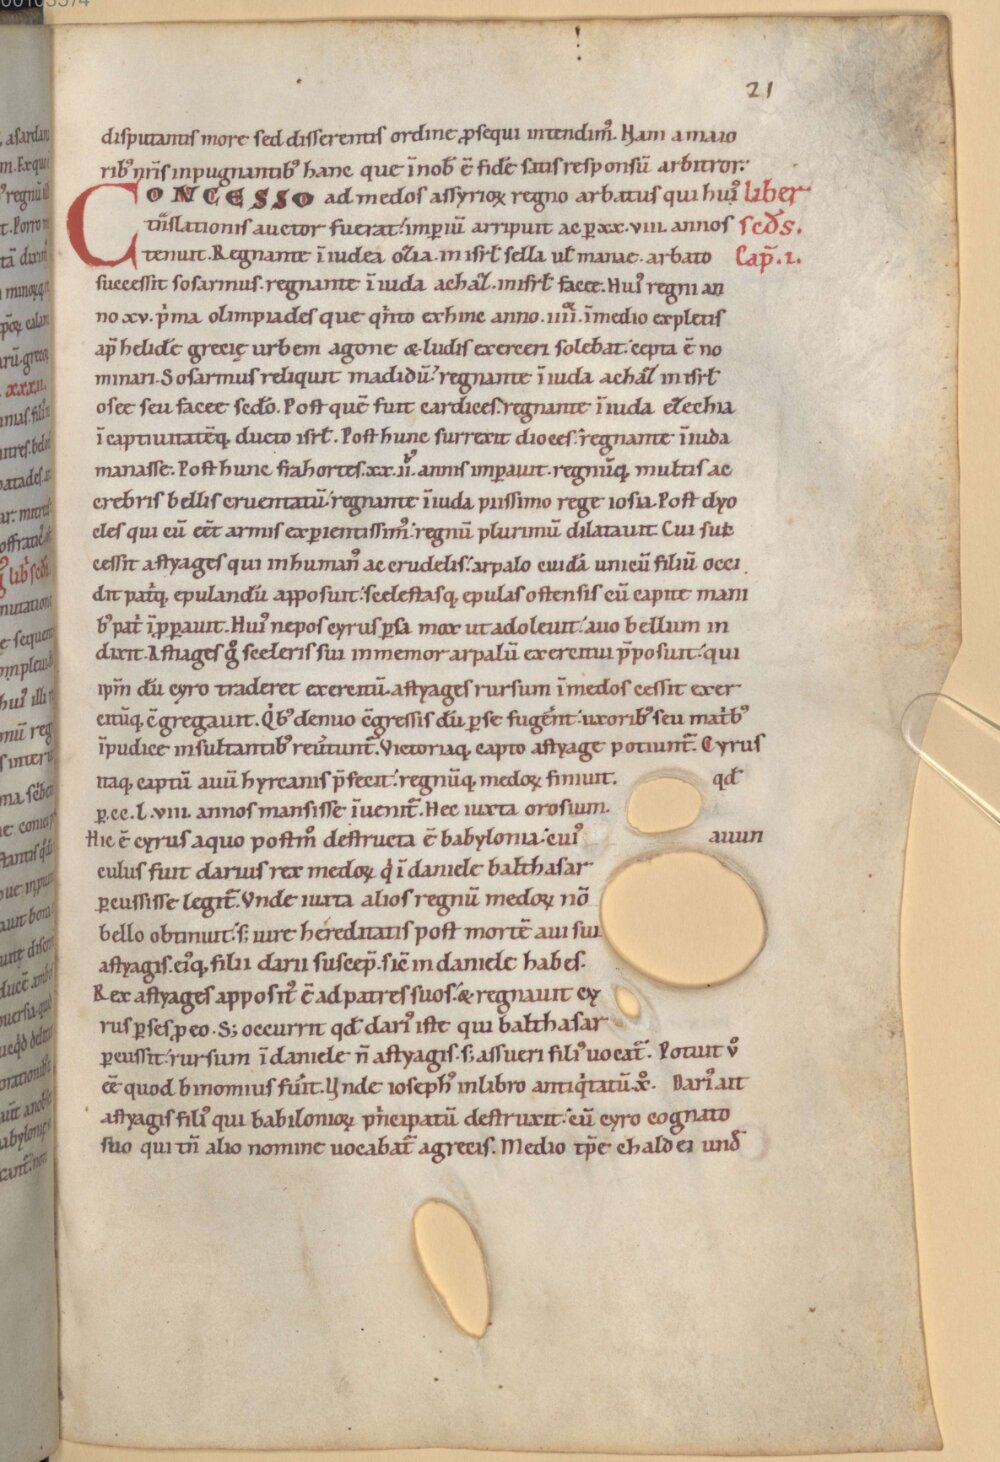 21
disputantis more sed disserentis ordine ꝓsequi intendim᷒. Nam a maio
rib᷒ nr̄is inpugnantib᷒ hanc que ī nob̄ ē fidē satis responsū arbitror.
CONCESSO ad medos assyrioꝝ regno arbatus qui hui᷒ liber
tn̄slationis auctor fuerat imꝑiū arripuit ac ꝑ xx.viii. annos scd̄s.
tenuit. Regnante ī iudea ozia. in isrł sella uł manae. arbato Cap̄.1.
successit sosarmus. regnante ī iuda achaz. in isrł facee. Hui᷒ regni an
no xv. p̄ma olimpiades que qr̄to exhinc anno .iiii. ī medio expletis
ap̄ helidē grecię urbem agone & ludis exerceri solebat cepta ē no
minari. Sosarmus reliquit madidū regnante ī iuda achaz in isrł
osee seu facee scd̄o. Post quē fuit cardices. regnante ī iuda ezechia
ī captiuitatēq, ducto isrł. Post hunc surrexit dioces. regnante ī iuda
manasse. Post hunc frahortes. xx.ii. annis imꝑauit. regnūq, multis ac
crebris bellis cruentatū regnante ī iuda piissimo rege iosia. Post dyo
cles qui eū eēt armis exꝑientissim᷒ regnū plurimū dilatauit. Cui suc
cessit astyages qui inhuman᷒ ac crudelis arpalo cuidā unicū filiū occi
dit patq, epulandū apposuit scelestasq, epulas ostensis cū capite mani
b᷒ pat ī ꝓꝑauit. Hui᷒ nepos cyrus ꝑsa mox ut adoleuit auo bellum in
dixit. Astiages g sceleris sui inmemor arpalū exercitui p̄posuit qui
ip̄m dū cyro traderet exercitū. astyages rursum ī medos cessit exer
citūq, c̄gregauit. Qb᷒ denuo c̄gressis dū ꝑse fugent uxorib᷒ seu mat᷒b᷒
īpudice insultantib᷒ reūtunt̄. Victoriaq, capto astyage potiunt̄. Cyrus
itaq, captū auū hyrcanis p̄fecit regnūq, medoꝝ finiuit. qd̄
ꝑ.cc.l.viii. annos mansisse īuenit̄. Hec iuxta orosium.
Hic ē cyrus a quo postm̄ destructa ē babylonia cui᷒ auun
culus fuit darius rex medoꝝ q ī daniele balthasar
ꝑcussisse legit̄. Vnde iuxta alios regnū medoꝝ nō
bello obtinuit s; iure hereditatis post mortē aui sui
astyagis. ei᷒q, filii darii suscep̄. sic̄ in daniele habes.
Rex astyages apposit᷒ ē ad patres suos & regnauit cy
rus ꝑses ꝓ eo. S; occurrit qd̄ dari᷒ iste qui balthasar
ꝑcussit rursum ī daniele n̄ astyagis. s; assueri fili᷒ uocat̄. Potuit v᷒
ēē quod binomius fuit. Vnde ioseph᷒ in libro antiqtatū.x. Dari᷒ ait
astyagis fili᷒ qui babilonioꝝ pncipatū destruxit cū cyro cognato
suo qui tn̄ alio nomine uocabat̄ a grecis. Medio tp̄e chaldei und̄